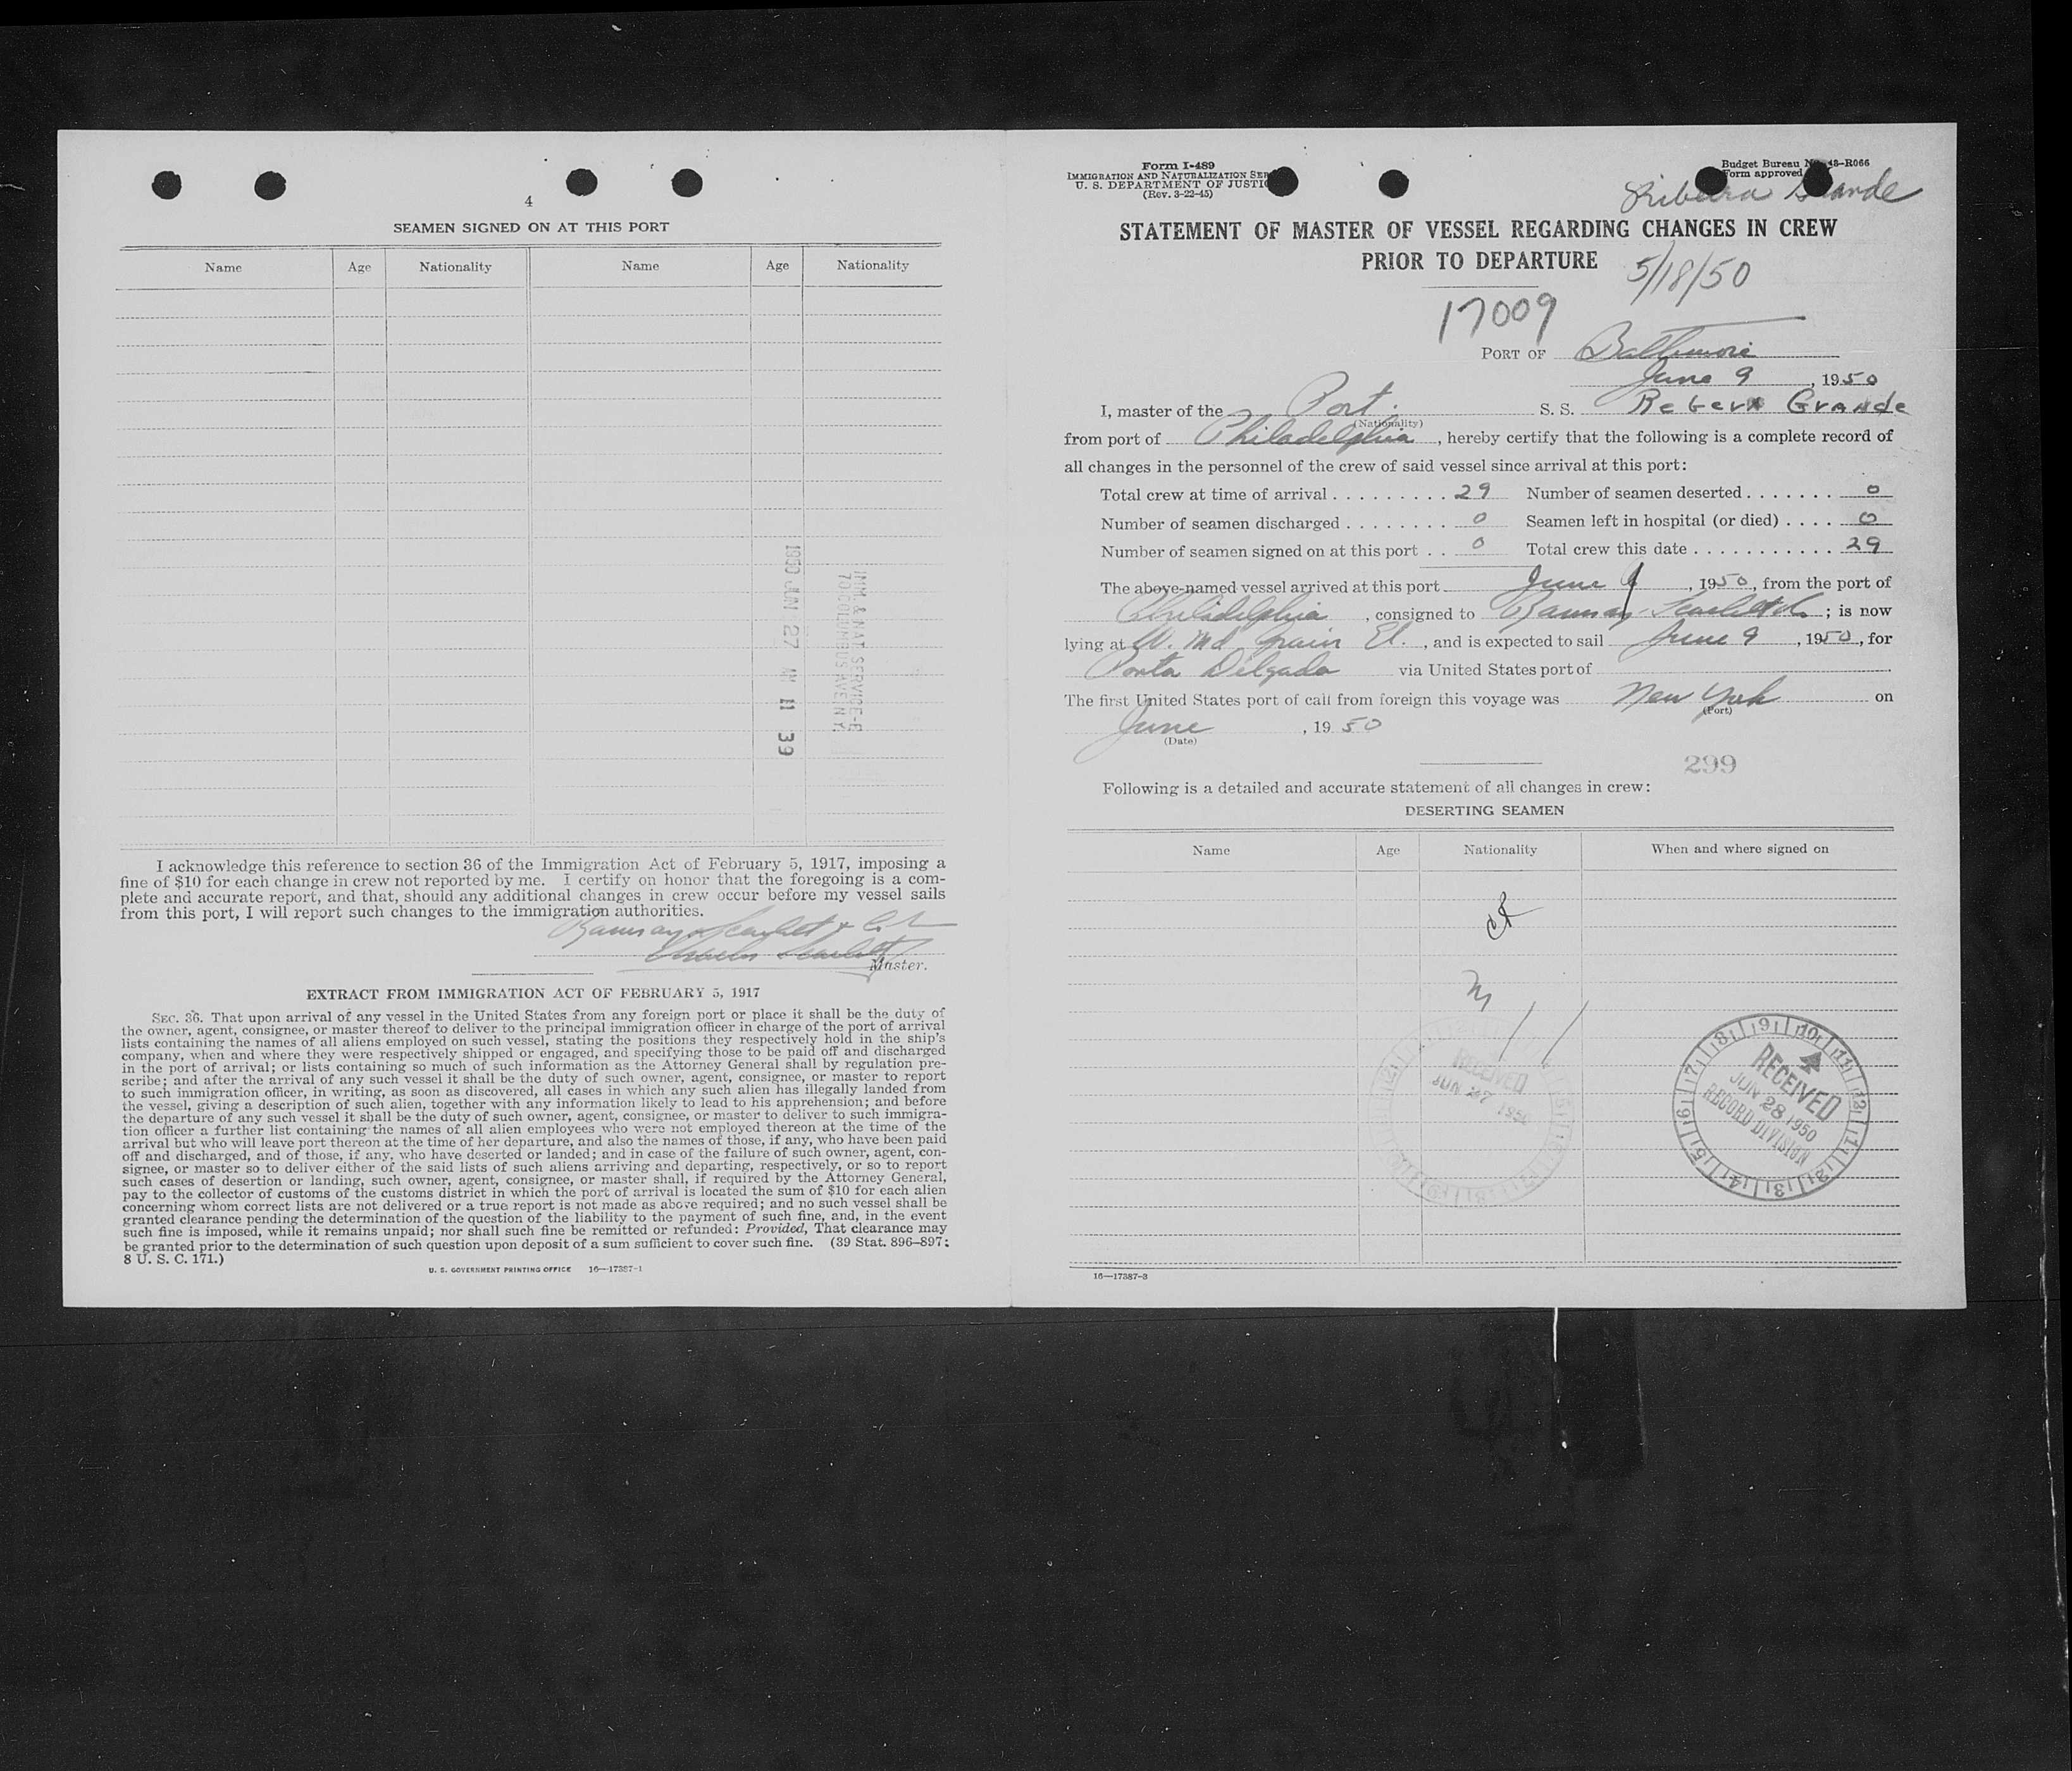 4
SEAMEN SIGNED ON AT THIS PORT
Name Age Nationality Name Age Nationality
1950 JUN 27 AM 11 39
IMM & NAT SERVICE-E
70 COLUMBUS AVE N.Y.
I acknowledge this reference to section 36 of the Immigration Act of February 5, 1917, imposing a
fine of $10 for each change in crew not reported by me. I certify on honor that the foregoing is a com-
plete and accurate report, and that, should any additional changes in crew occur before my vessel sails
from this port, I will report such changes to the immigration authorities.
Ramsay Scarlett & Co
Charles Scarlett
Master.
EXTRACT FROM IMMIGRATION ACT OF FEBRUARY 5, 1917
SEC. 36. That upon arrival of any vessel in the United States from any foreign port or place it shall be the duty of
the owner, agent, consignee, or master thereof to deliver to the principal immigration officer in charge of the port of arrival
lists containing the names of all aliens employed on such vessel, stating the positions they respectively hold in the ship's
company, when and where they were respectively shipped or engaged, and specifying those to be paid off and discharged
in the port of arrival; or lists containing so much of such information as the Attorney General shall by regulation pre-
scribe; and after the arrival of any such vessel it shall be the duty of such owner, agent, consignee, or master to report
to such immigration officer, in writing, as soon as discovered, all cases in which any such alien has illegally landed from
the vessel, giving a description of such alien, together with any information likely to lead to his apprehension; and before
the departure of any such vessel it shall be the duty of such owner, agent, consignee, or master to deliver to such immigra-
tion officer a further list containing the names of all alien employees who were not employed thereon at the time of the
arrival but who will leave port thereon at the time of her departure, and also the names of those, if any, who have been paid
off and discharged, and of those, if any, who have deserted or landed; and in case of the failure of such owner, agent, con-
signee, or master so to deliver either of the said lists of such aliens arriving and departing, respectively, or so to report
such cases of desertion or landing, such owner, agent, consignee, or master shall, if required by the Attorney General,
pay to the collector of customs of the customs district in which the port of arrival is located the sum of $10 for each alien
concerning whom correct lists are not delivered or a true report is not made as above required; and no such vessel shall be
granted clearance pending the determination of the question of the liability to the payment of such fine, and, in the event
such fine is imposed, while it remains unpaid; nor shall such fine be remitted or refunded: Provided, That clearance may
be granted prior to the determination of such question upon deposit of a sum sufficient to cover such fine. (39 Stat. 896–897;
8 U. S. C. 171.)
U. S. GOVERNMENT PRINTING OFFICE 16—17387-1
Form I-489
IMMIGRATION AND NATURALIZATION SER
U. S. DEPARTMENT OF JUSTIC
(Rev. 3-22-45)
Budget Bureau N 43-R066
Form approved
Ribeira Grande
STATEMENT OF MASTER OF VESSEL REGARDING CHANGES IN CREW
PRIOR TO DEPARTURE
5/18/50
17009
PORT OF Baltimore
June 9, 1950
I, master of the Port. S. S. Grande
(Nationality)
from port of Philadelphia, hereby certify that the following is a complete record of
all changes in the personnel of the crew of said vessel since arrival at this port:
Total crew at time of arrival 29 Number of seamen deserted 0
Number of seamen discharged 0 Seamen left in hospital (or died) 0
Number of seamen signed on at this port 0 Total crew this date 29
The above-named vessel arrived at this port June, 1950, from the port of
Philadelphia, consigned to Ramsay Scarlett & Co; is now
lying at W. Md Grain El., and is expected to sail June 9, 1950, for
Ponta Delgada via United States port of
The first United States port of call from foreign this voyage was New York on
(Port)
June, 1950
(Date)
299
Following is a detailed and accurate statement of all changes in crew:
DESERTING SEAMEN
Name Age Nationality When and where signed on
RECEIVED
JUN 27 1950
RECEIVED
JUN 28 1950
RECORD DIVISION
16—17387-3